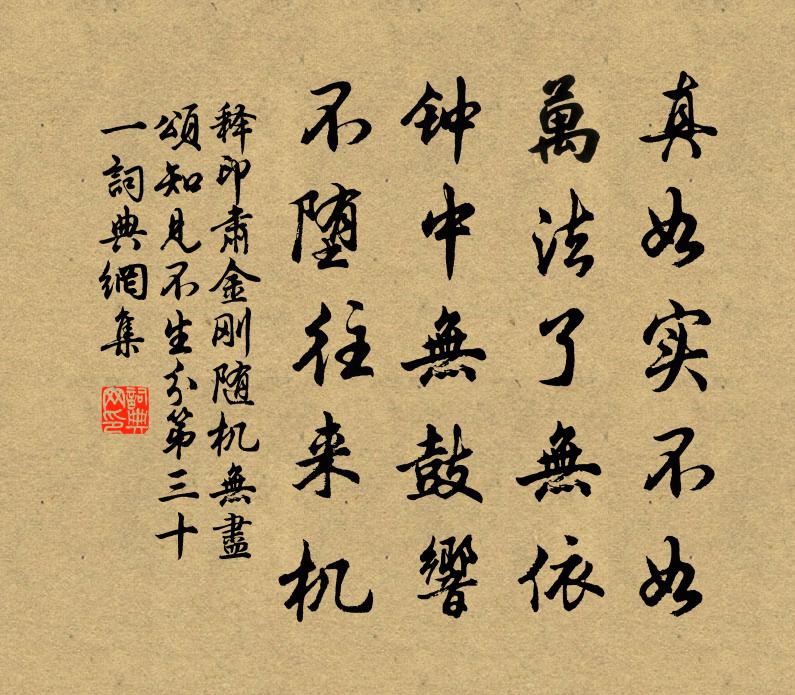 真如实不如
萬法了無依
钟中無鼓響
不堕往来机
释印肃金刚随机無盡
頌知見不生分第三十
一詞典網集
詞典網印